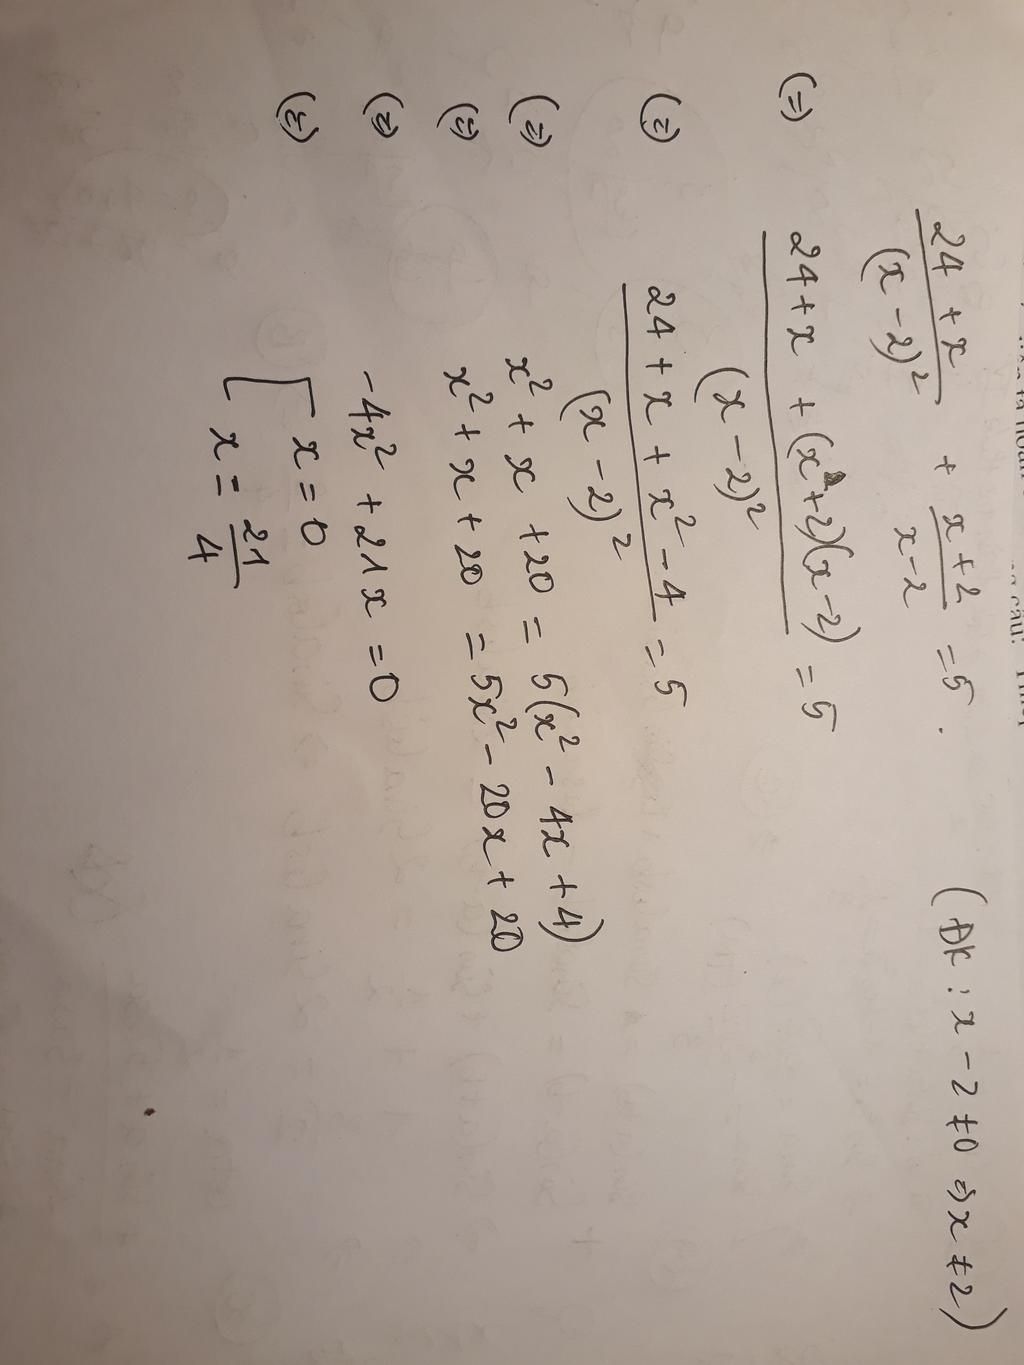 24 + x / (x - 2)² + x+2 / x-2 = 5. (ĐK: x - 2 ≠ 0 => x ≠ 2)
(=) 24 + x + (x+2)(x-2) / (x - 2)² = 5
(=) 24 + x + x² - 4 / (x - 2)² = 5
(=) x² + x + 20 = 5(x² - 4x + 4)
(=) x² + x + 20 = 5x² - 20x + 20
(=) -4x² + 21x = 0
(=) [ x = 0
x = 21/4